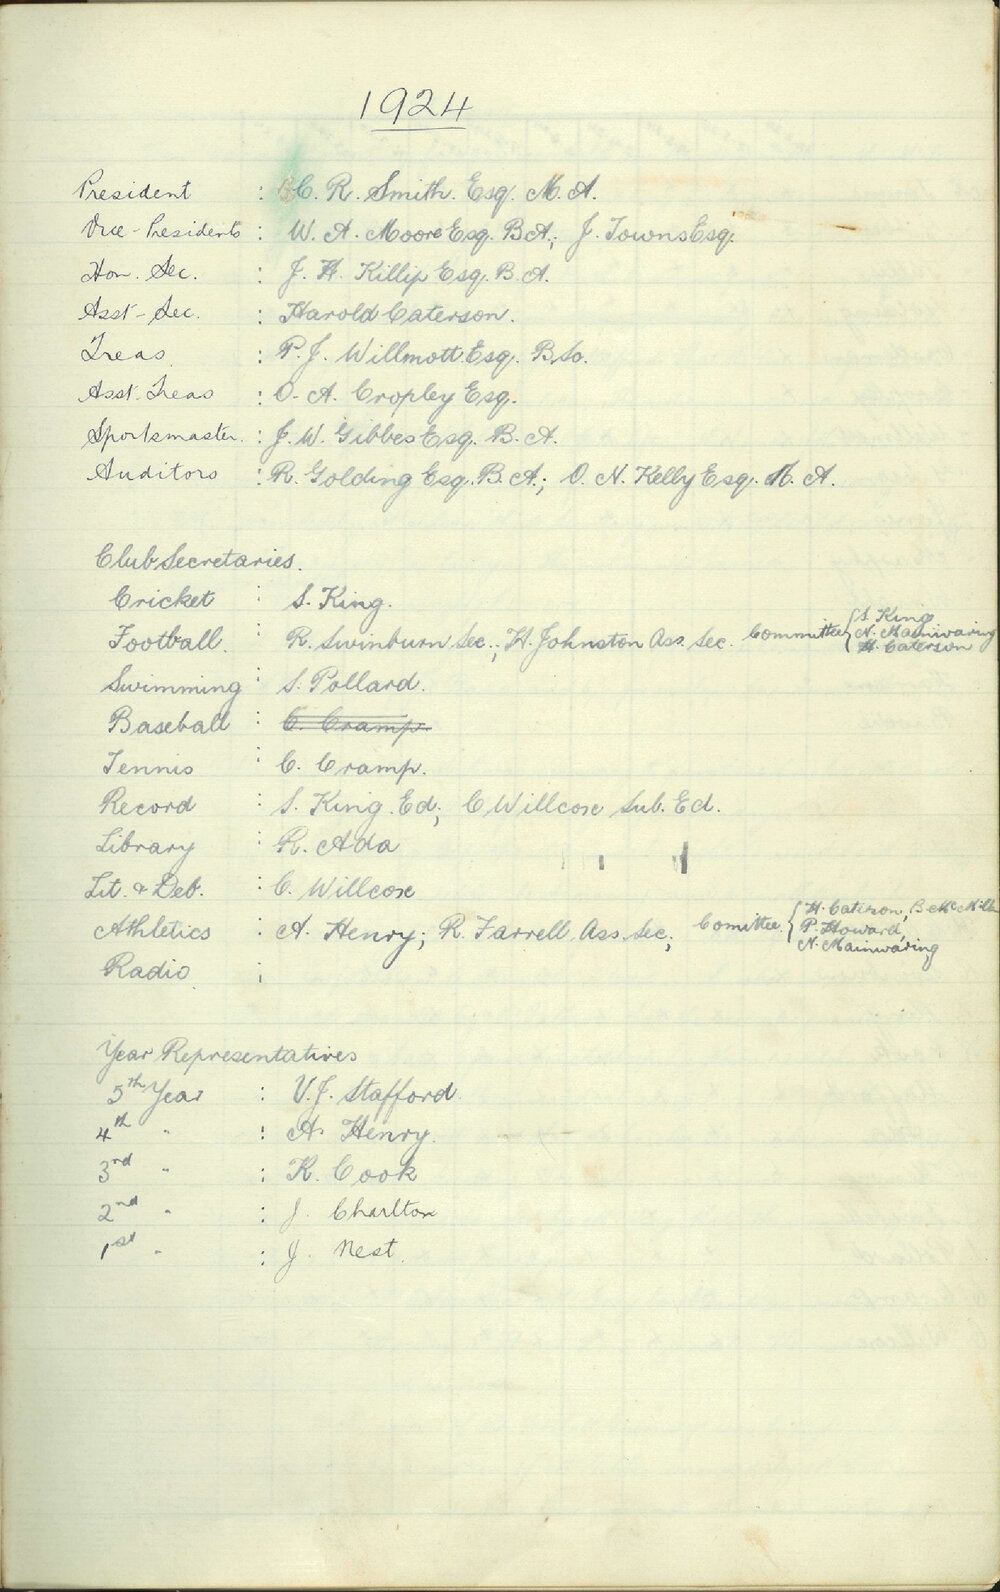 1924
President : C. R. Smith. Esq. M. A.
Vice-Presidents : W. A. Moore Esq. B.A.; J. Towns Esq.
Hon. Sec. : J. H. Killip Esq. B. A.
Asst-Sec. : Harold Caterson.
Treas. : P. J. Willmott Esq. B.Sc.
Asst. Treas : O. A. Cropley Esq.
Sportsmaster. : J. W. Gibbes Esq. B. A.
Auditors : R. Golding Esq. B. A.; O. N. Kelly Esq. M. A.
Club Secretaries.
Cricket : S. King.
Football. : R. Swinburn Sec.; H. Johnston Ass. Sec. Committee { S. King
N. Mainwaring
H. Caterson
Swimming : S. Pollard.
Baseball : C. Cramp.
Tennis : C. Cramp.
Record : S. King. Ed; C Willcox Sub. Ed.
Library : R. Ada
Lit. & Deb. : C. Willcox
Athletics : A. Henry; R. Farrell Ass. Sec; Comittee. { H. Caterson,
P. Howard,
N. Mainwaring
Radio. :
Year Representatives
5th Year : V. J. Stafford.
4th " : A. Henry.
3rd " : K. Cook
2nd " : J. Charlton
1st " : J. Nest.